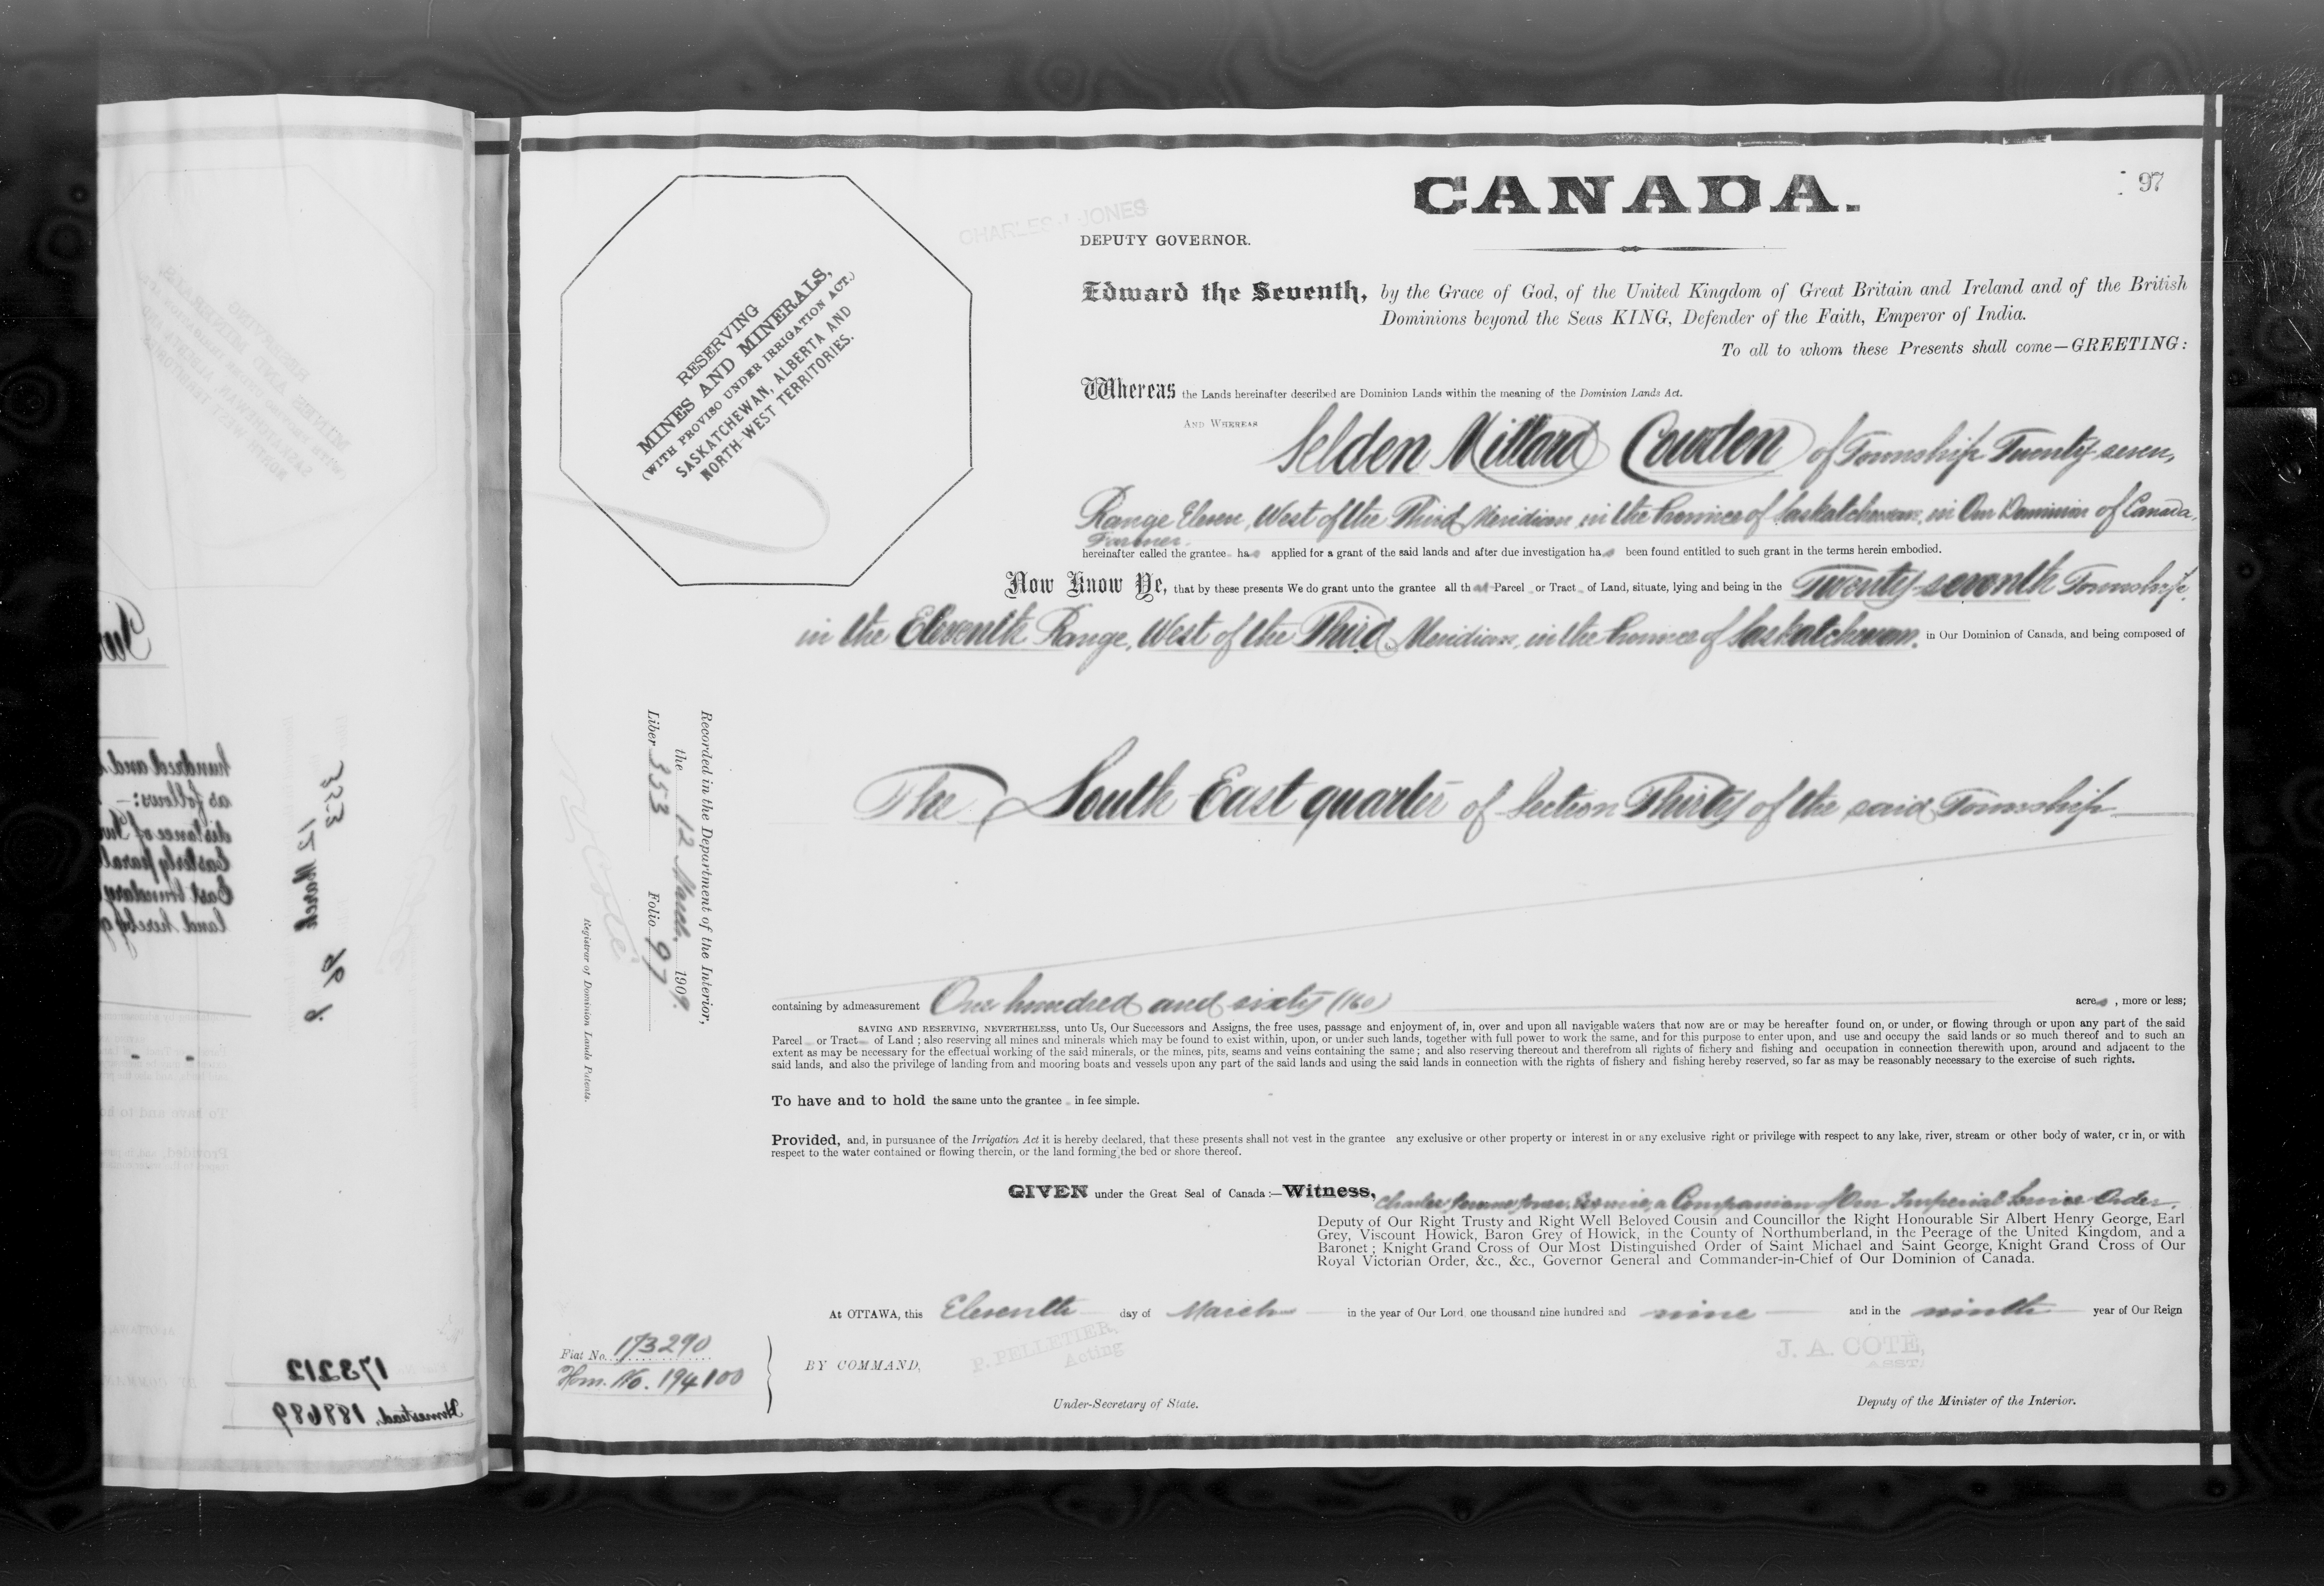 CANADA.
97
CHARLES J. JONES
DEPUTY GOVERNOR.
RESERVING
MINES AND MINERALS,
(WITH PROVISO UNDER IRRIGATION ACT.)
SASKATCHEWAN, ALBERTA AND
NORTH-WEST TERRITORIES.
Edward the Seventh, by the Grace of God, of the United Kingdom of Great Britain and Ireland and of the British
Dominions beyond the Seas KING, Defender of the Faith, Emperor of India.
To all to whom these Presents shall come—GREETING:
Whereas the Lands hereinafter described are Dominion Lands within the meaning of the Dominion Lands Act.
AND WHEREAS Selden Millard Cowden of Township Twenty seven,
Range Eleven, West of the Third Meridian, in the Province of Saskatchewan, in Our Dominion of Canada,
Farmer.
hereinafter called the grantee has applied for a grant of the said lands and after due investigation has been found entitled to such grant in the terms herein embodied.
Now Know Ye, that by these presents We do grant unto the grantee all that Parcel or Tract of Land, situate, lying and being in the Twenty-seventh Township,
in the Eleventh Range, West of the Third Meridian, in the Province of Saskatchewan, in Our Dominion of Canada, and being composed of
The South East quarter of Section Thirty of the said Township
containing by admeasurement One hundred and sixty (160) acres, more or less;
SAVING AND RESERVING, NEVERTHELESS, unto Us, Our Successors and Assigns, the free uses, passage and enjoyment of, in, over and upon all navigable waters that now are or may be hereafter found on, or under, or flowing through or upon any part of the said
Parcel or Tract of Land; also reserving all mines and minerals which may be found to exist within, upon, or under such lands, together with full power to work the same, and for this purpose to enter upon, and use and occupy the said lands or so much thereof and to such an
extent as may be necessary for the effectual working of the said minerals, or the mines, pits, seams and veins containing the same; and also reserving thereout and therefrom all rights of fishery and fishing and occupation in connection therewith upon, around and adjacent to the
said lands, and also the privilege of landing from and mooring boats and vessels upon any part of the said lands and using the said lands in connection with the rights of fishery and fishing hereby reserved, so far as may be reasonably necessary to the exercise of such rights.
To have and to hold the same unto the grantee in fee simple.
Provided, and, in pursuance of the Irrigation Act it is hereby declared, that these presents shall not vest in the grantee any exclusive or other property or interest in or any exclusive right or privilege with respect to any lake, river, stream or other body of water, or in, or with
respect to the water contained or flowing therein, or the land forming the bed or shore thereof.
GIVEN under the Great Seal of Canada:—Witness, Charles Jerome Jones, Esquire, a Companion of Our Imperial Service Order,
Deputy of Our Right Trusty and Right Well Beloved Cousin and Councillor the Right Honourable Sir Albert Henry George, Earl
Grey, Viscount Howick, Baron Grey of Howick, in the County of Northumberland, in the Peerage of the United Kingdom, and a
Baronet; Knight Grand Cross of Our Most Distinguished Order of Saint Michael and Saint George, Knight Grand Cross of Our
Royal Victorian Order, &c., &c., Governor General and Commander-in-Chief of Our Dominion of Canada.
At OTTAWA, this Eleventh day of March in the year of Our Lord, one thousand nine hundred and nine and in the ninth year of Our Reign
Fiat No. 173290
Hom. No. 194100
BY COMMAND,
P. PELLETIER,
Acting
Under-Secretary of State.
J. A. COTE,
ASST.
Deputy of the Minister of the Interior.
Recorded in the Department of the Interior,
the 12 March, 1909.
Liber 353 Folio 97
N. O. Coté
Registrar of Dominion Lands Patents.
hundred and
as follows:—
distance of
Easterly
East boundary
land hereby
353
12 March
173212
Homestead, 189689